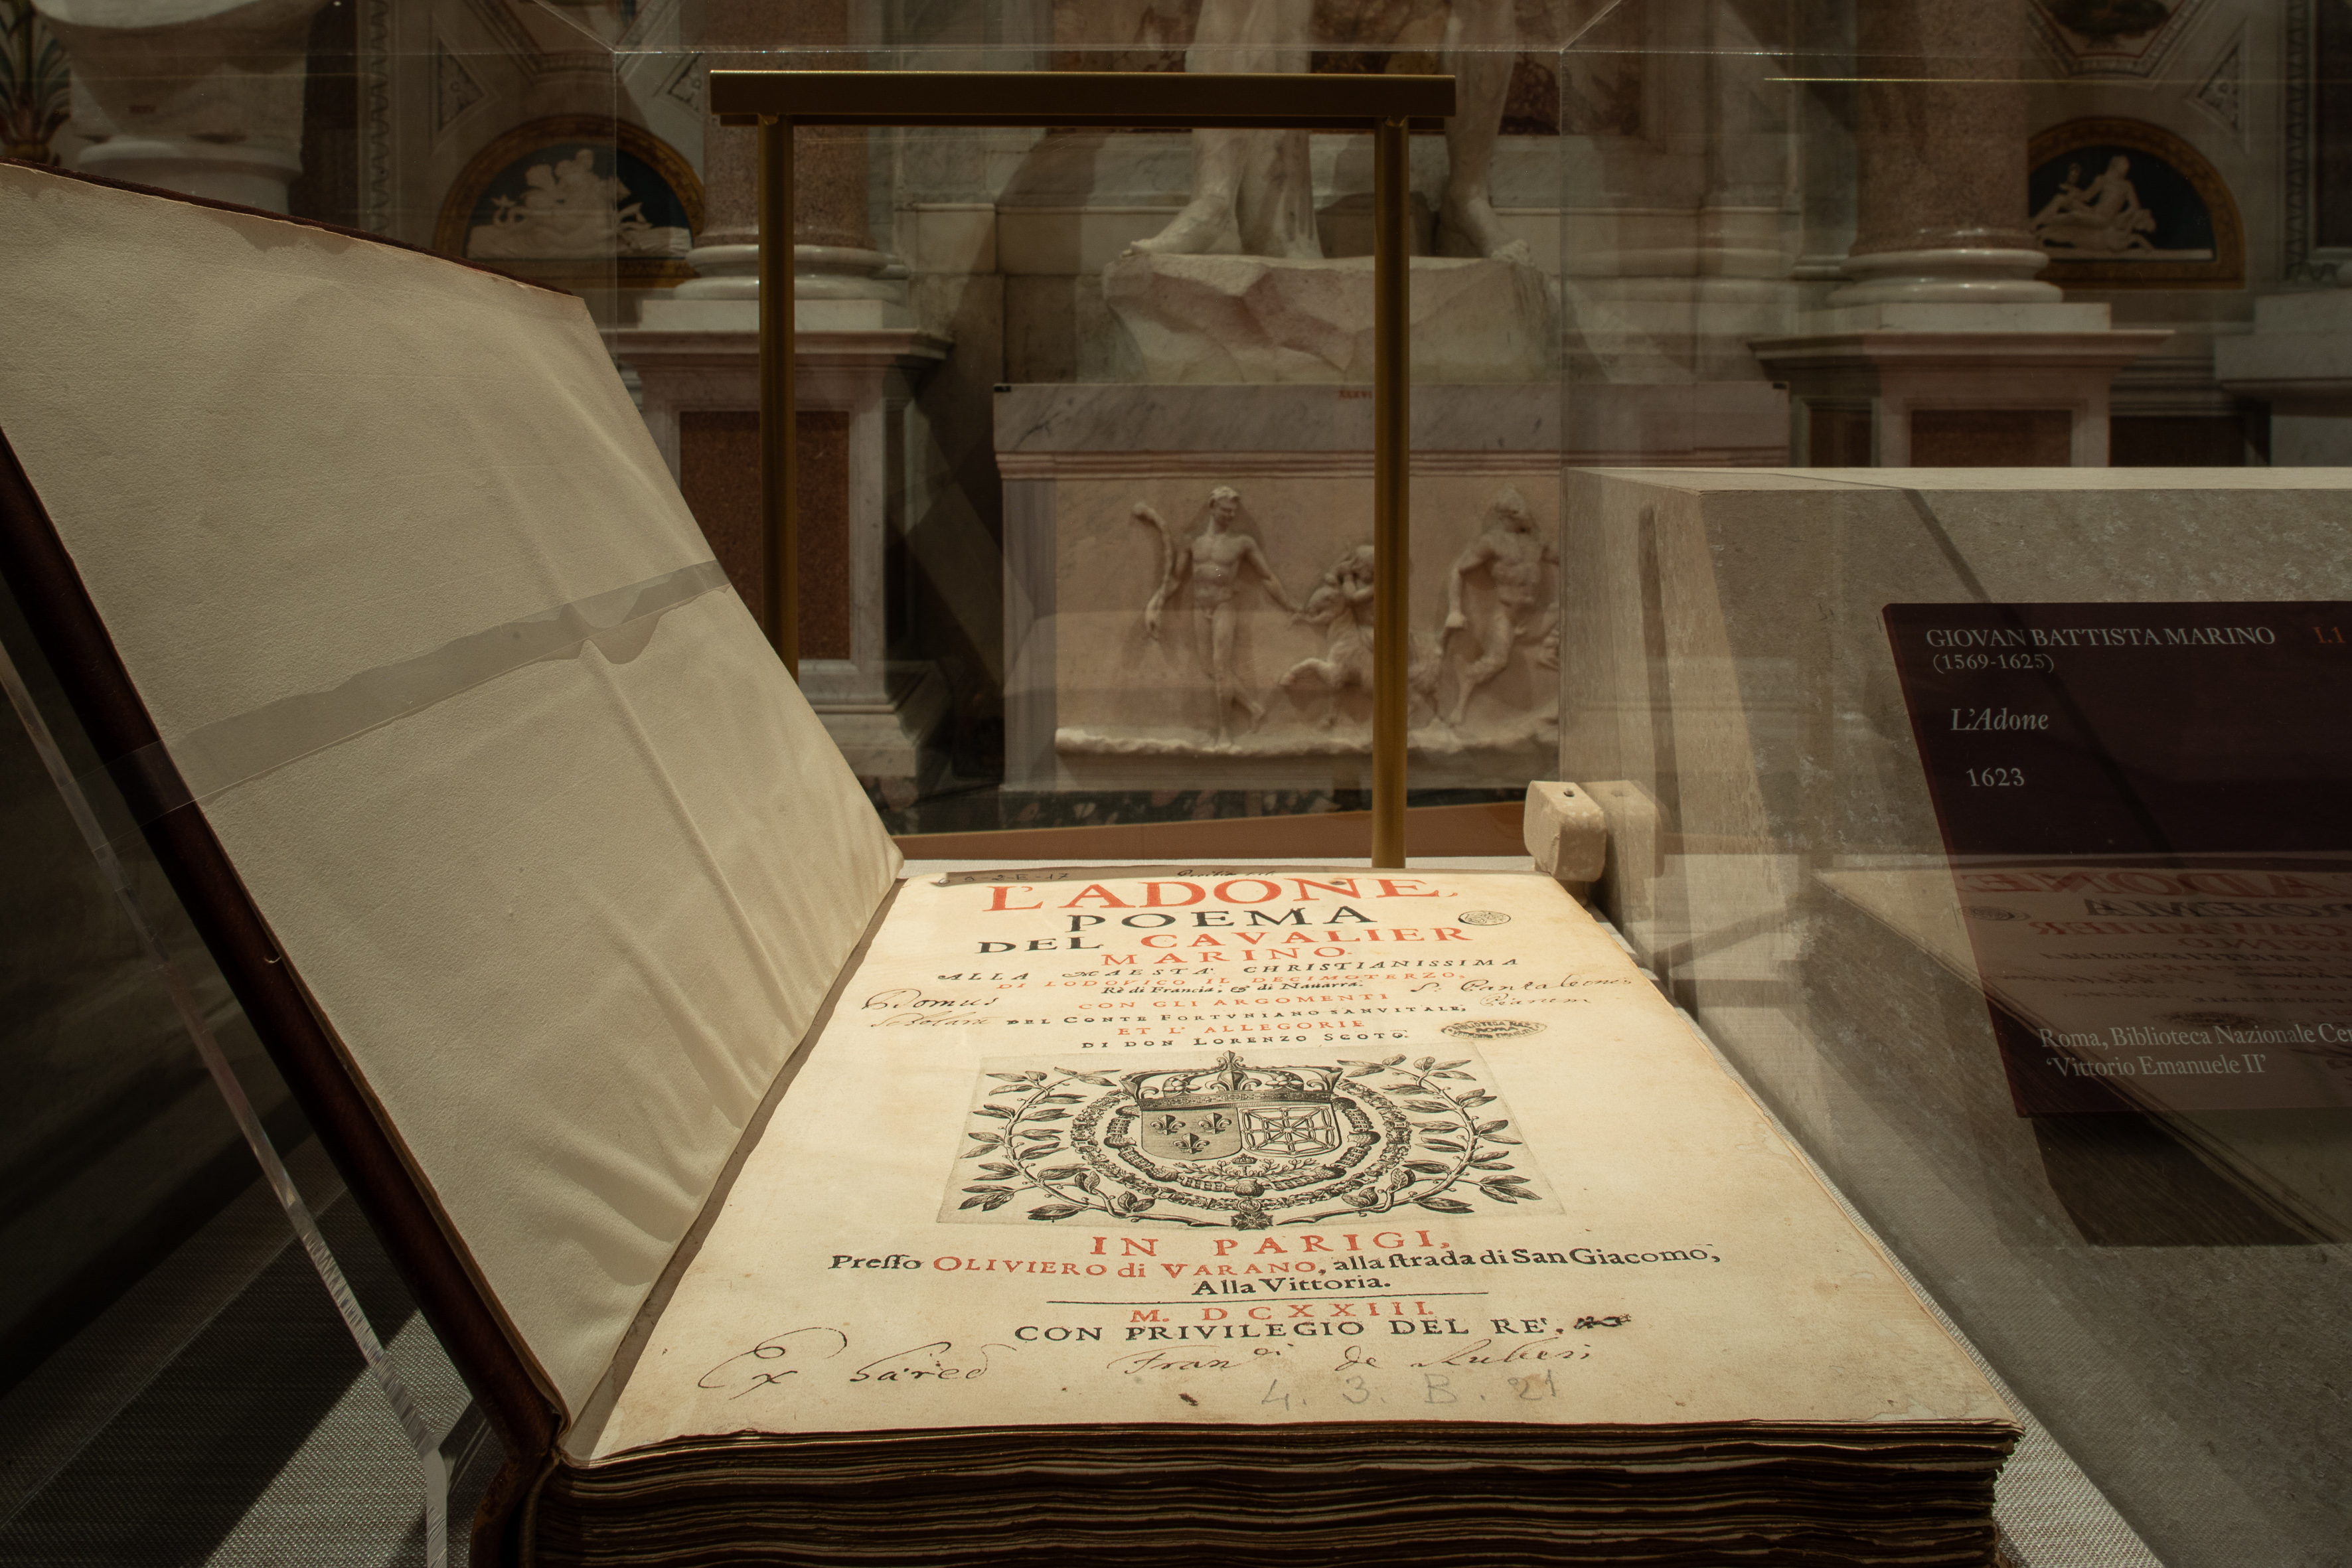 L'ADONE,
POEMA
DEL CAVALIER
MARINO.
ALLA MAESTÀ CHRISTIANISSIMA
DI LODOVICO IL DECIMOTERZO,
Rè di Francia, & di Nauarra.
CON GLI ARGOMENTI
DEL CONTE FORTVNIANO SANVITALE,
ET L'ALLEGORIE
DI DON LORENZO SCOTO.
Domus
S. Pantaleonis
IN PARIGI,
Presso OLIVIERO di VARANO, alla strada di San Giacomo,
Alla Vittoria.
M. DCXXIII.
CON PRIVILEGIO DEL RE'.
Ex
Fran de Ruberi
4. 3. B. 21
GIOVAN BATTISTA MARINO I.1
(1569-1625)
L'Adone
1623
Roma, Biblioteca Nazionale Ce
'Vittorio Emanuele II'